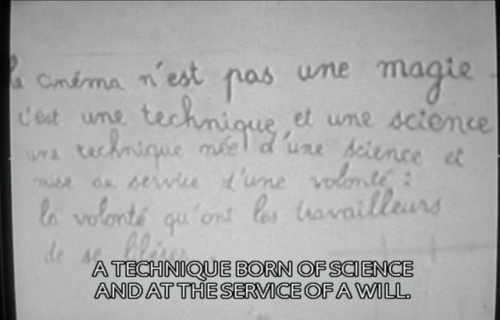 le cinéma n'est pas une magie.
c'est une technique et une science
une technique née d'une science et
mise au service d'une volonté :
la volonté qu'ont les travailleurs
de se
A TECHNIQUE BORN OF SCIENCE
AND AT THE SERVICE OF A WILL.